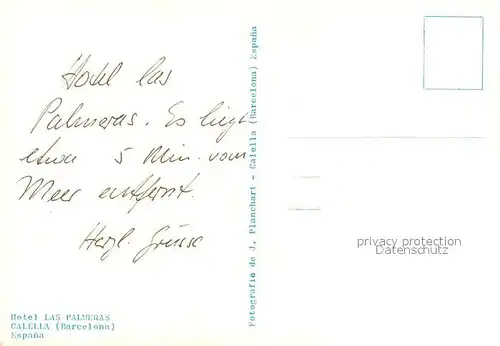 Hotel las
Palmeras. Es liegt
etwa 5 Min. vom
Meer entfernt.
Herzl. Grüsse
Hotel LAS PALMERAS
CALELLA (Barcelona)
España
Fotografía de J. Planchart - Calella (Barcelona) España
privacy protection
Datenschutz